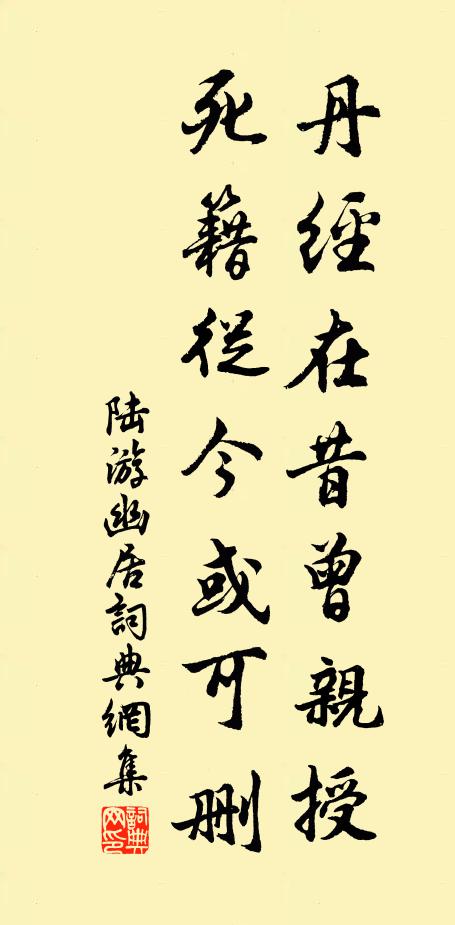 丹經在昔曾親授
死籍從今或可刪
陸游幽居詞典網集
詞典網印